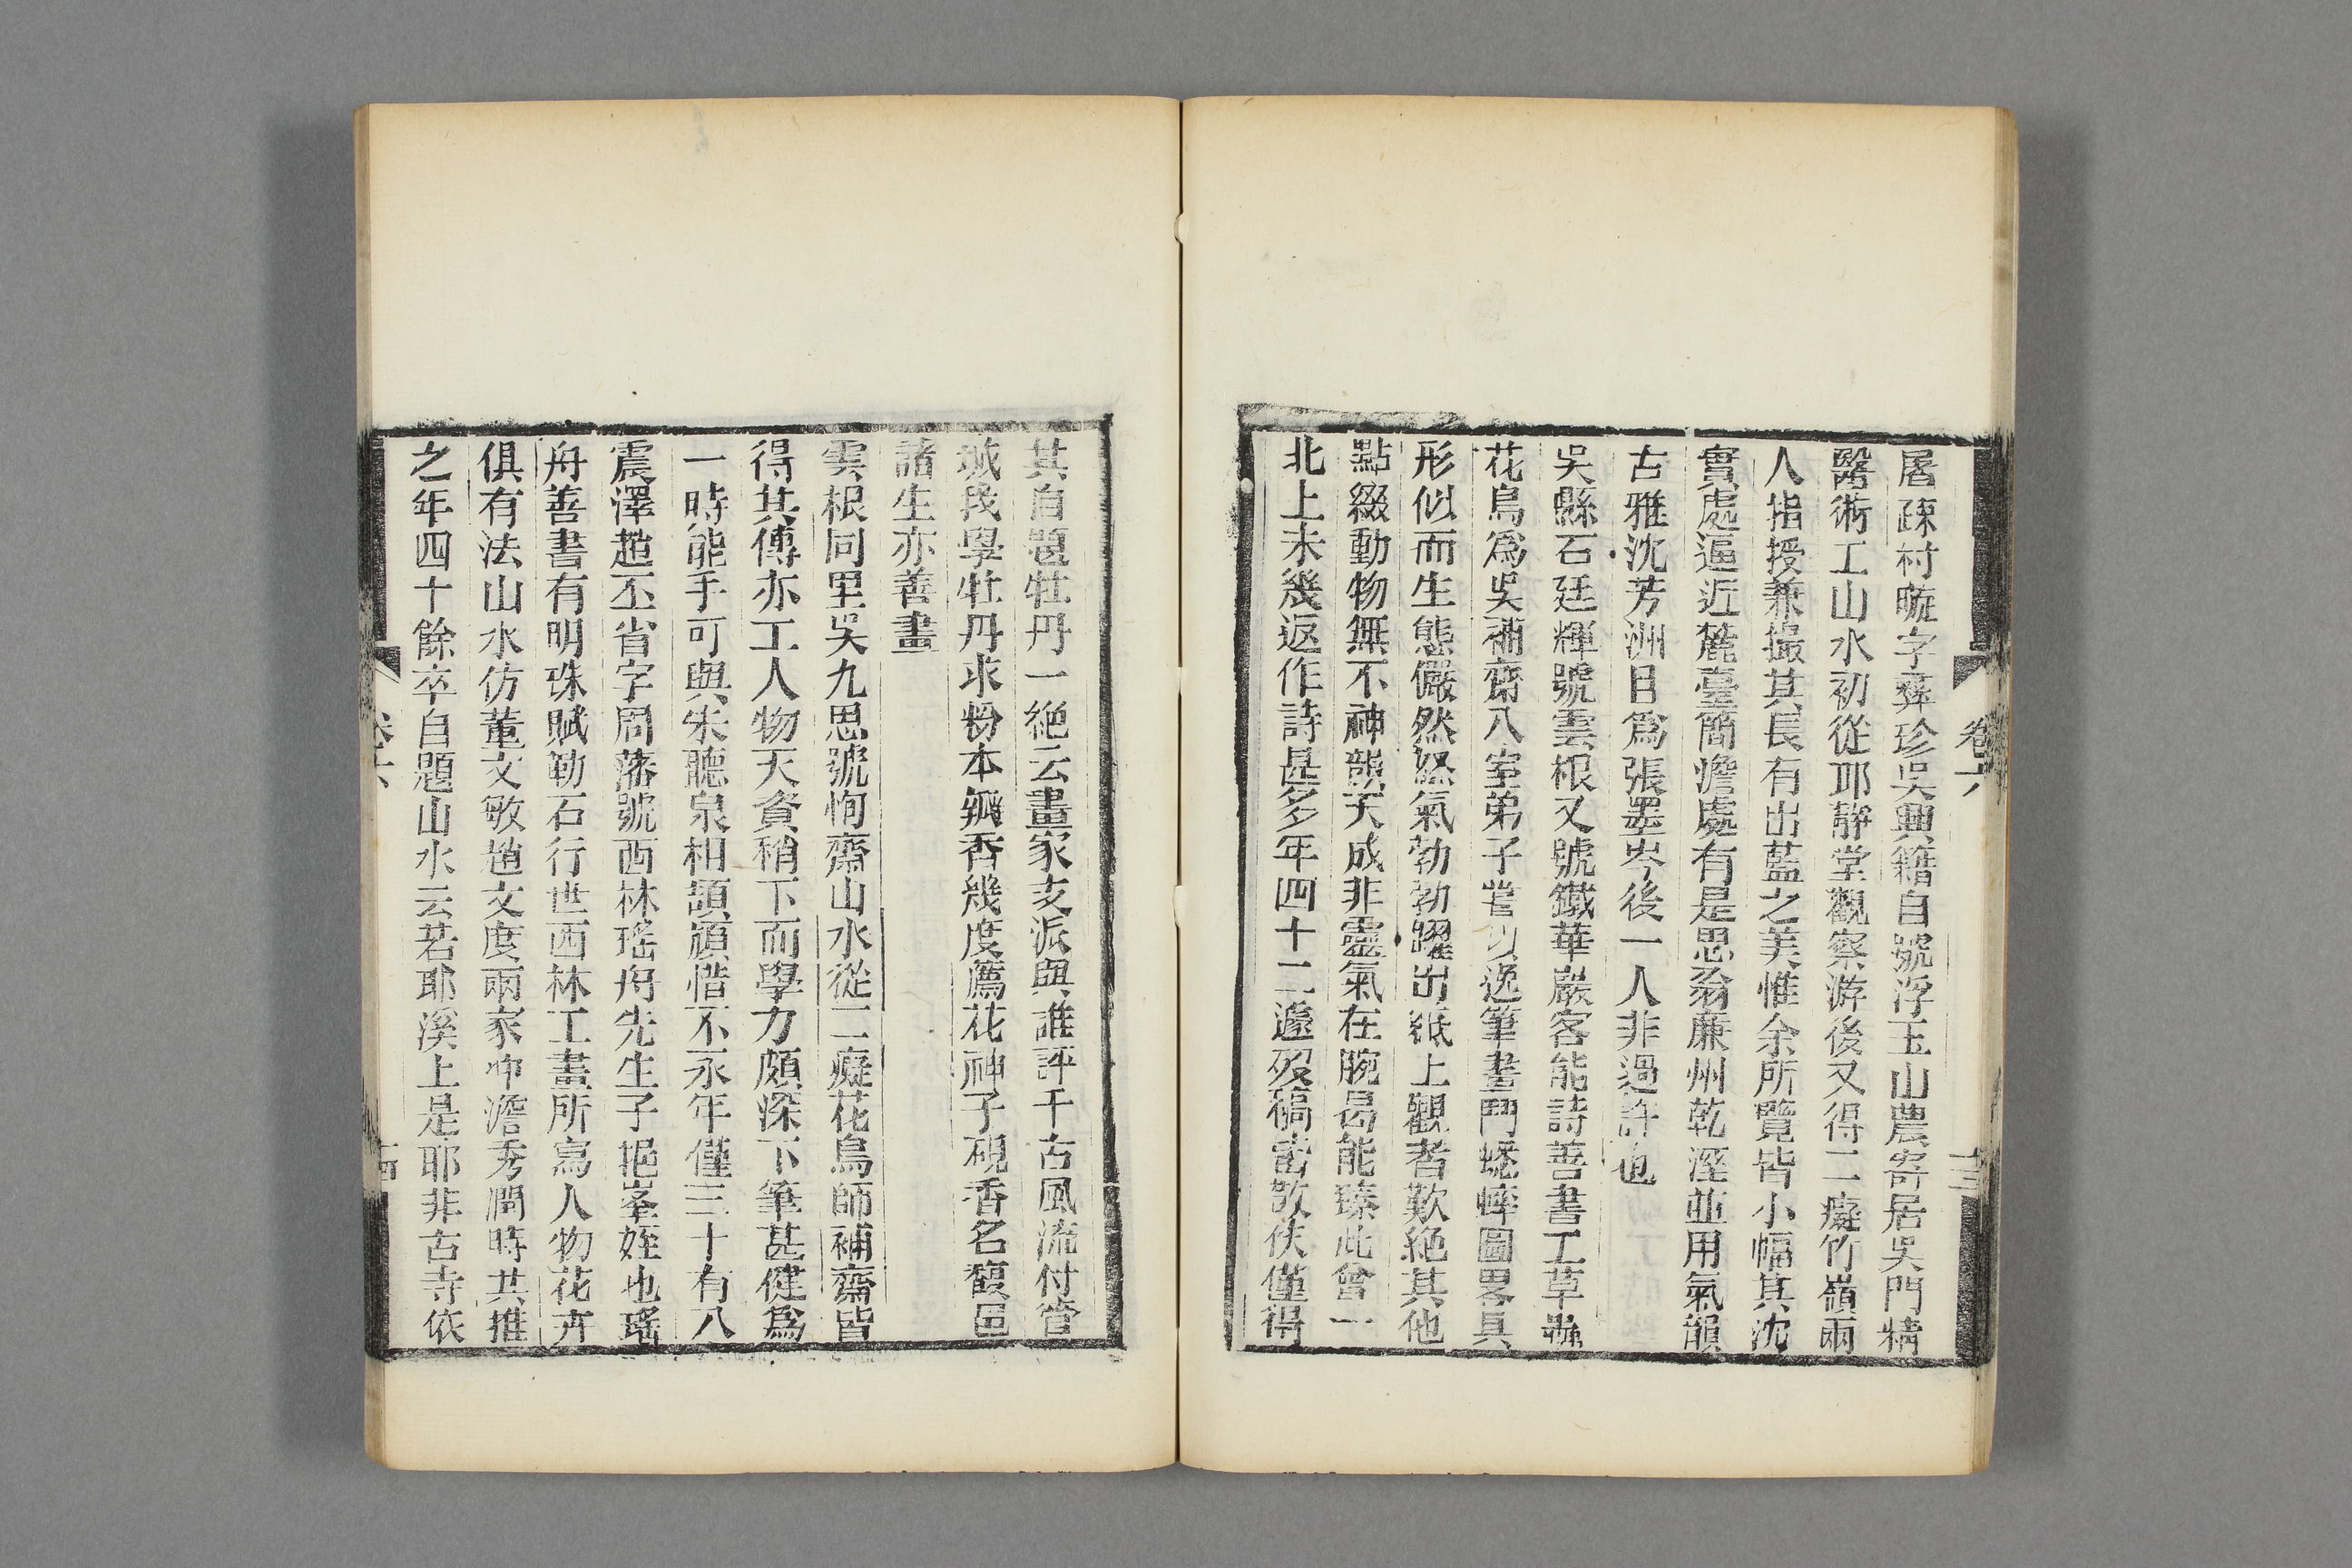 卷六
十三
屠疎村晱字彝珍吳興籍自號浮玉山農寄居吳門精
醫術工山水初從耶靜堂觀察游後又得二癡竹嶺兩
人指授兼撮其長有出藍之美惟余所覽皆小幅其沈
實處逼近麓臺簡澹處有是思翁廉州乾溼並用氣韻
古雅沈芳洲目爲張墨岑後一人非過許也
吳縣石廷輝號雲根又號鐵華巖客能詩善書工草蟲
花鳥爲吳補齋入室弟子嘗以逸筆畫鬥蟋蟀圖畧具
形似而生態儼然怒氣勃勃躍出紙上觀者歎絶其他
點綴動物無不神韻天成非靈氣在腕曷能臻此曾一
北上未幾返作詩甚多年四十二遽歿稿皆散佚僅得
其自題牡丹一絶云畫家支派與誰評千古風流付管
城我學牡丹求粉本瓣香幾度薦花神子硯香名馥邑
諸生亦善畫
雲根同里吳九思號恂齋山水從二癡花鳥師補齋皆
得其傳亦工人物天資稍下而學力頗深下筆甚健爲
一時能手可與朱聽泉相頡頏惜不永年僅三十有八
震澤趙丕省字周藩號西林瑤舟先生子挹峯姪也瑤
舟善書有明珠賦勒石行世西林工畫所寫人物花卉
俱有法山水仿董文敏趙文度兩家沖澹秀潤時共推
之年四十餘卒自題山水云若耶溪上是耶非古寺依
卷六
十四